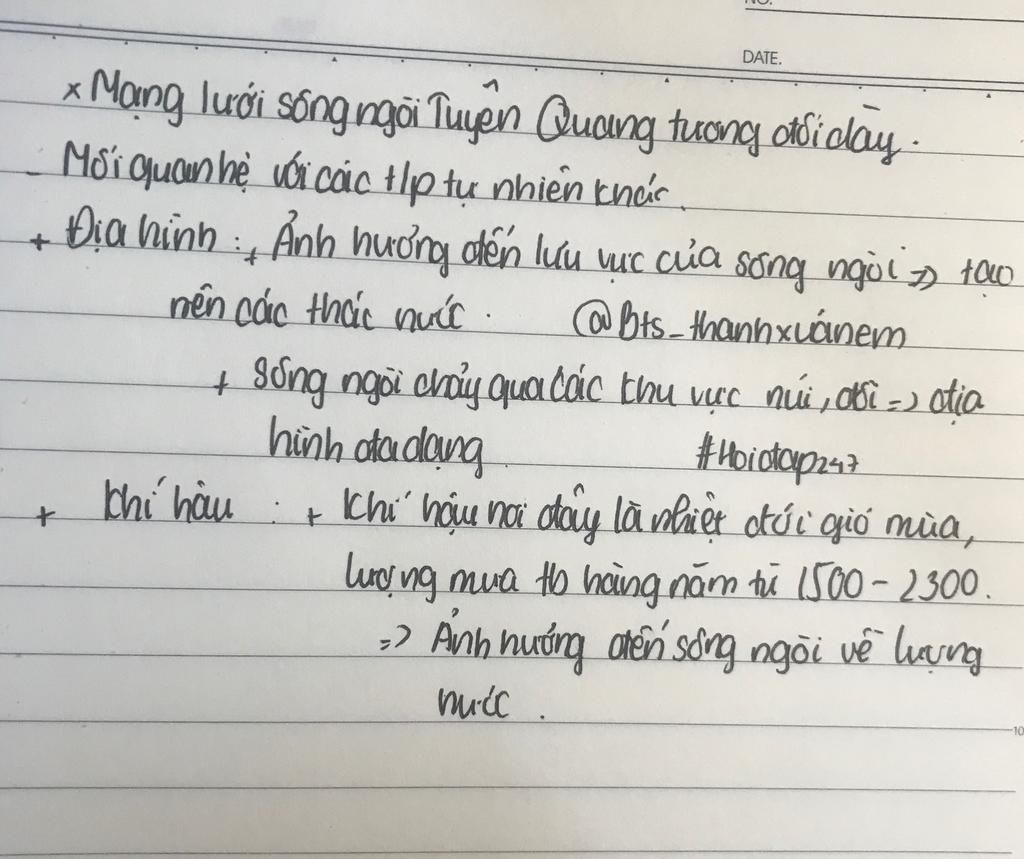 NO.
DATE.
× Mạng lưới sông ngòi Tuyên Quang tương đối dày.
- Mối quan hệ với các t/p tự nhiên khác.
+ Địa hình : + Ảnh hưởng đến lưu vực của sông ngòi => tạo
nên các thác nước. @Bts_thanhxuânem
+ sông ngòi chảy qua các khu vực núi, đồi => địa
hình đa dạng #Hoidap247
+ khí hậu : + Khí hậu nơi đây là nhiệt đới gió mùa,
lượng mưa tb hàng năm từ 1500 - 2300.
=> Ảnh hưởng đến sông ngòi về lượng
nước.
10